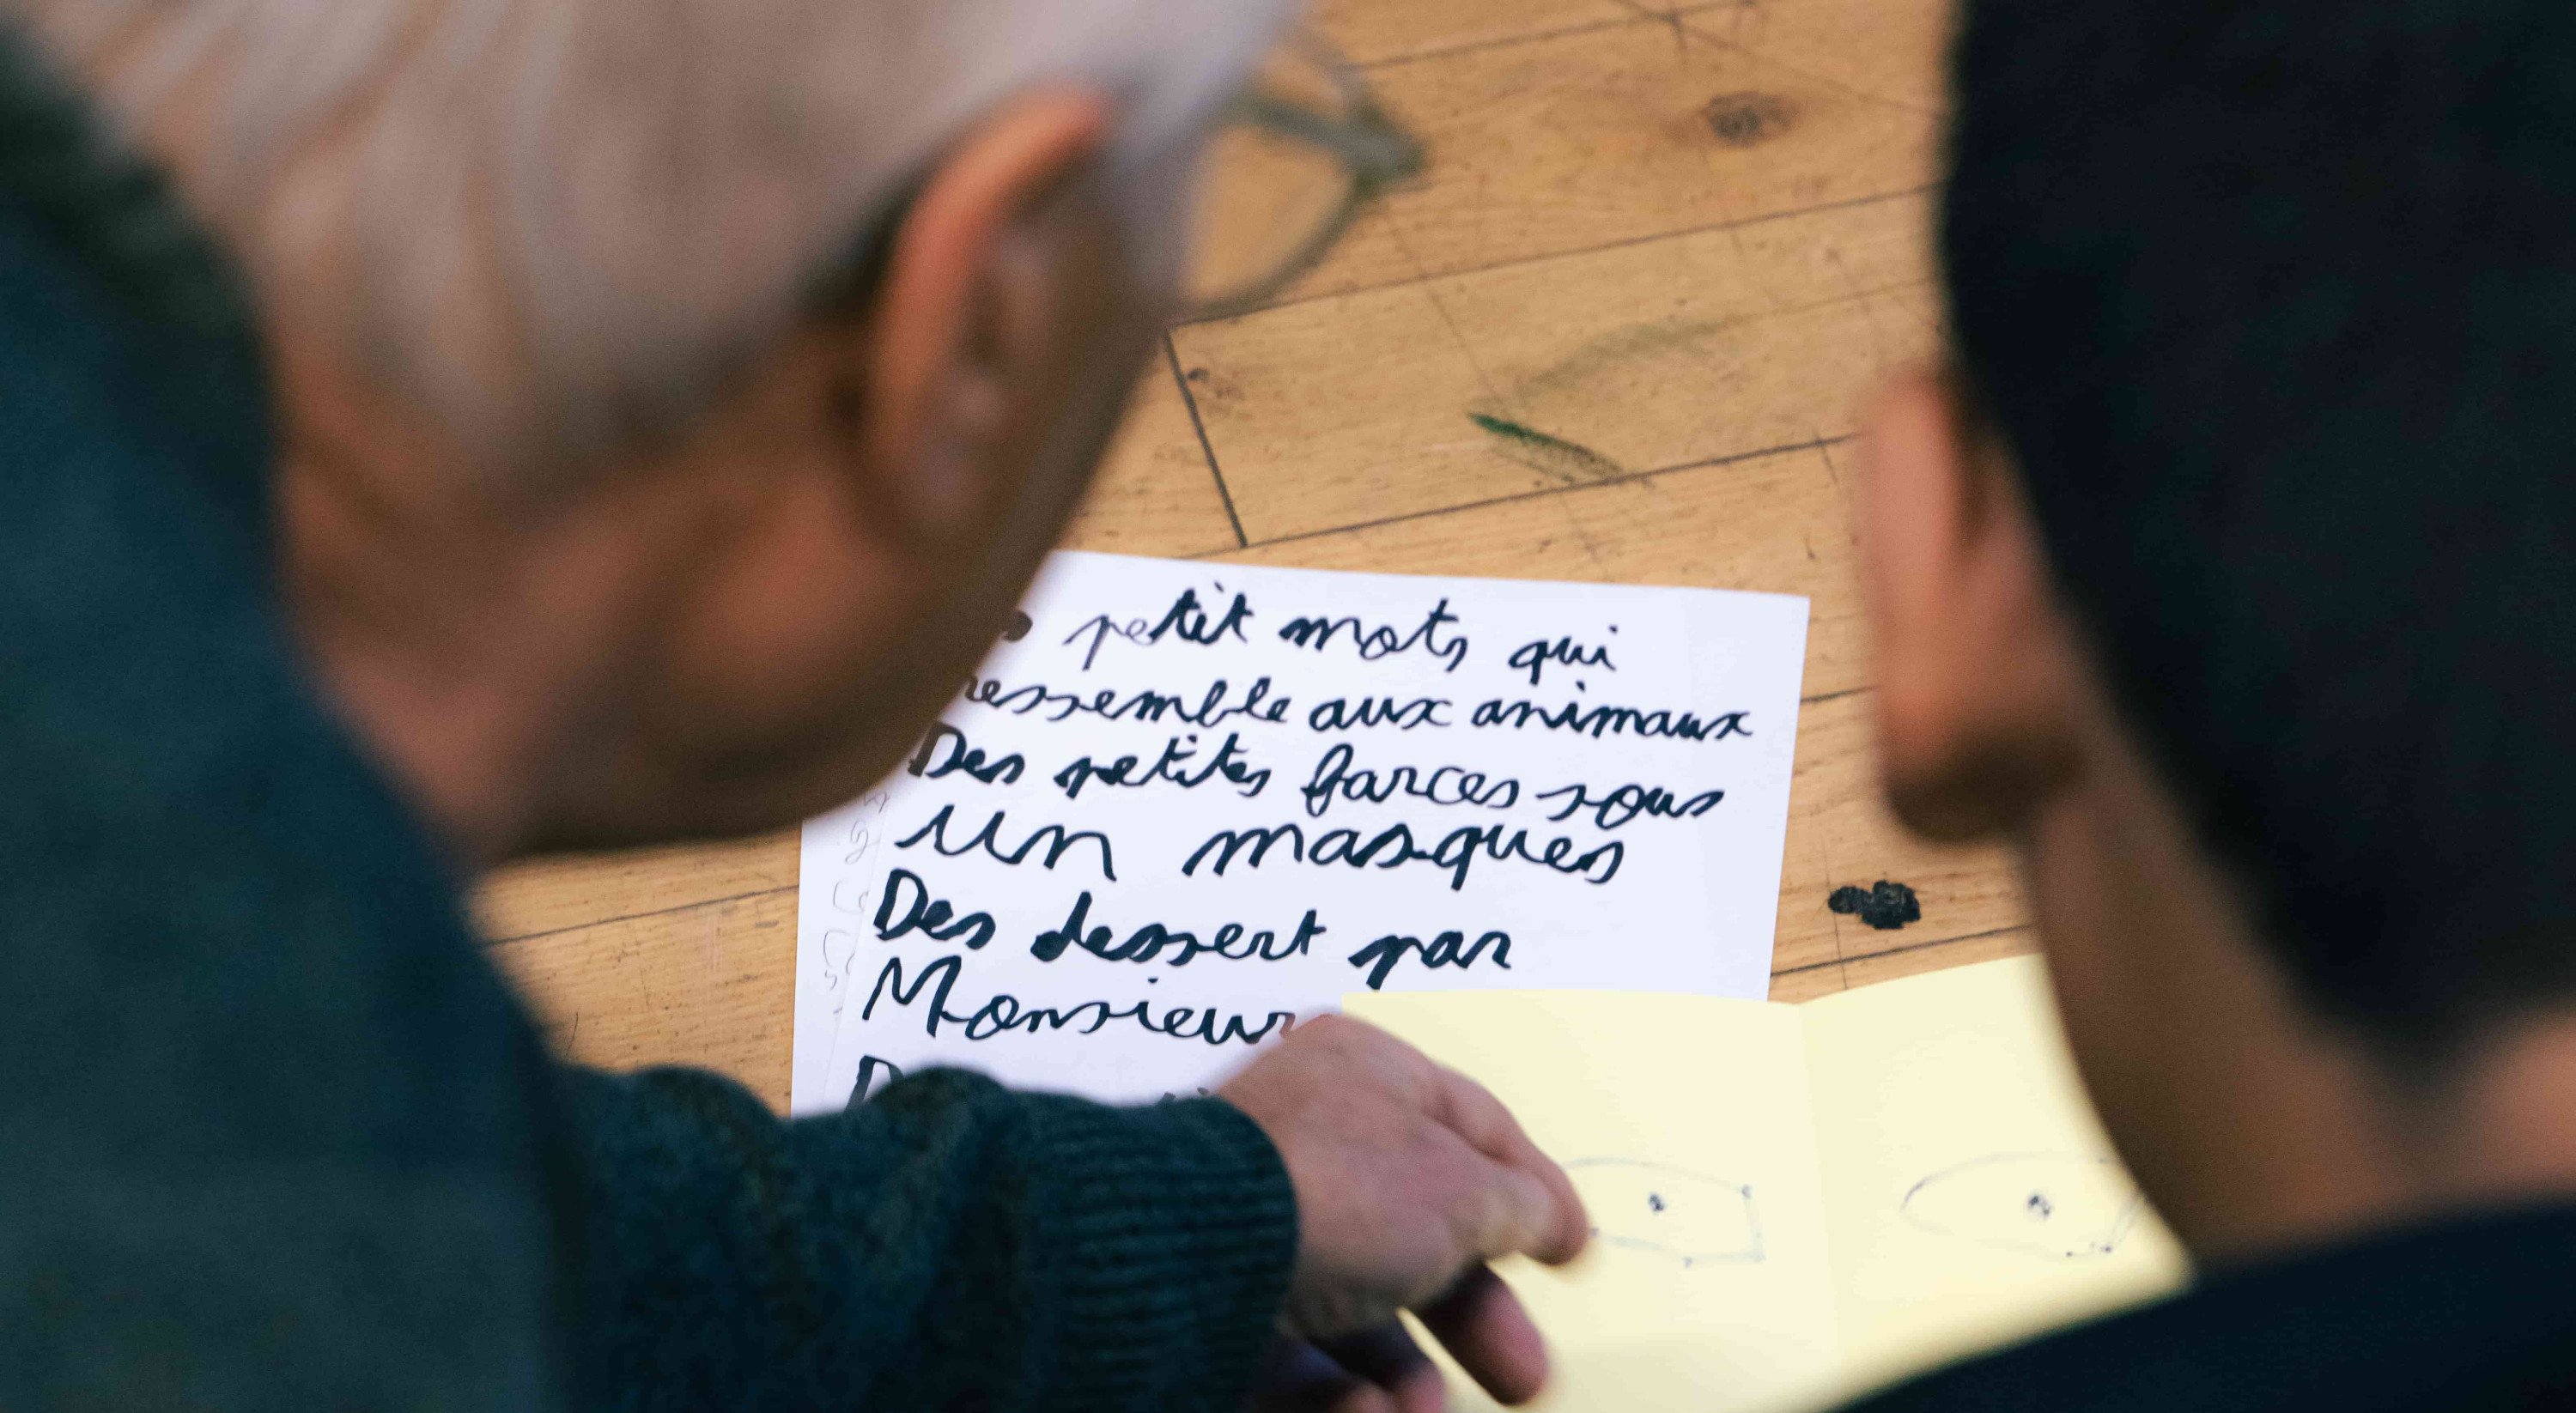 petit mots qui
ressemble aux animaux
Des petites farces sous
un masques
Des dessert par
Monsieur